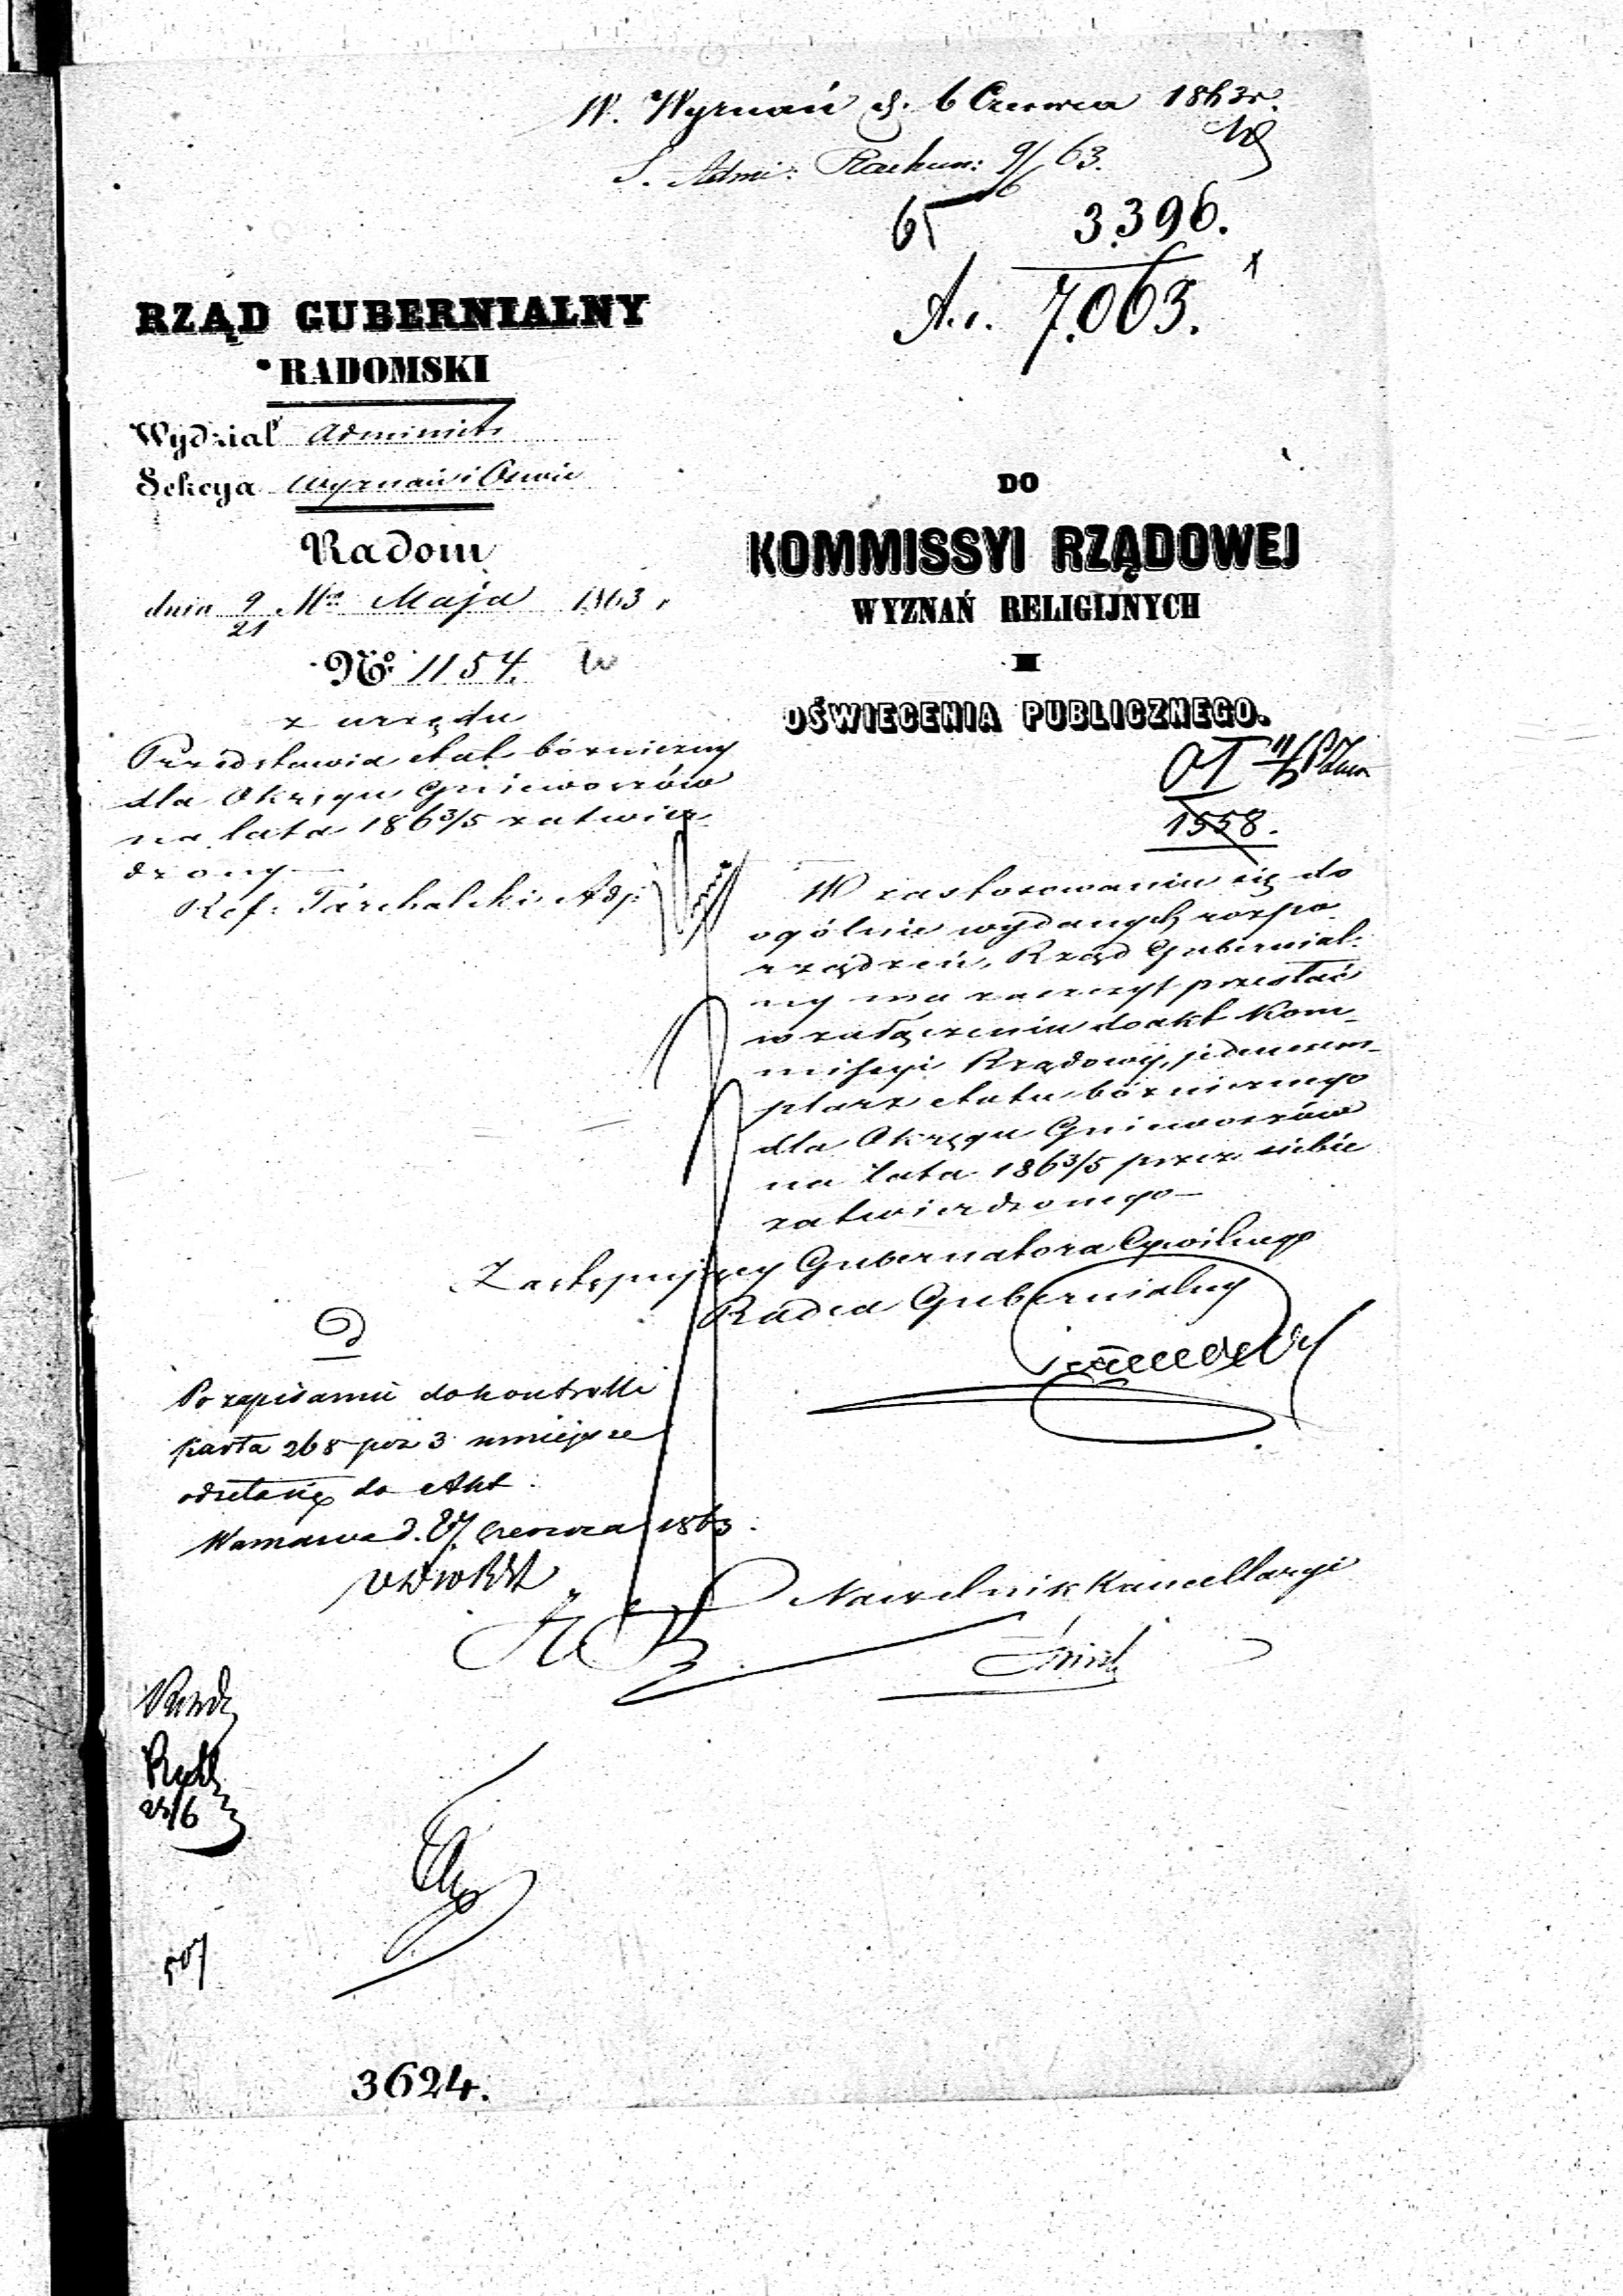 W. Wyznań d. 6 Czerwca 1863 r.
S. Admi: Rachun: 9/6 63.
65 3396.
A. 7.063.
RZĄD GUBERNIALNY
RADOMSKI
Wydział Administr
Sekcya Wyznań i Oświe
Radom
dnia 9/21 Mca Maja 1863 r
No 1154.
z urzędu
Przedstawia etat bóżniczny
dla Okręgu Gniewoszów
na lata 1863/5 zatwier-
dzony
Ref: Tarchalski Adj:
DO
KOMMISSYI RZĄDOWEJ
WYZNAŃ RELIGIJNYCH
I
OŚWIECENIA PUBLICZNEGO.
1558.
W zastosowaniu się do
ogólnie wydanych rozpo-
rządzeń, Rząd Gubernial-
ny ma zaszczyt przesłać
w załączeniu do akt Kom-
missyi Rządowej, jeden exem-
plarz etatu bóżnicznego
dla Okręgu Gniewoszów
na lata 1863/5 przez siebie
zatwierdzonego
Zastępujący Gubernatora Cywilnego
Radca Gubernialny
Po zapisaniu do kontrolli
karta 268 poz 3 umieysce
odsełasię do Akt.
Warszawa d. 27 Czerwca 1863.
Naczelnik Kancellaryi
23/6
507
3624.